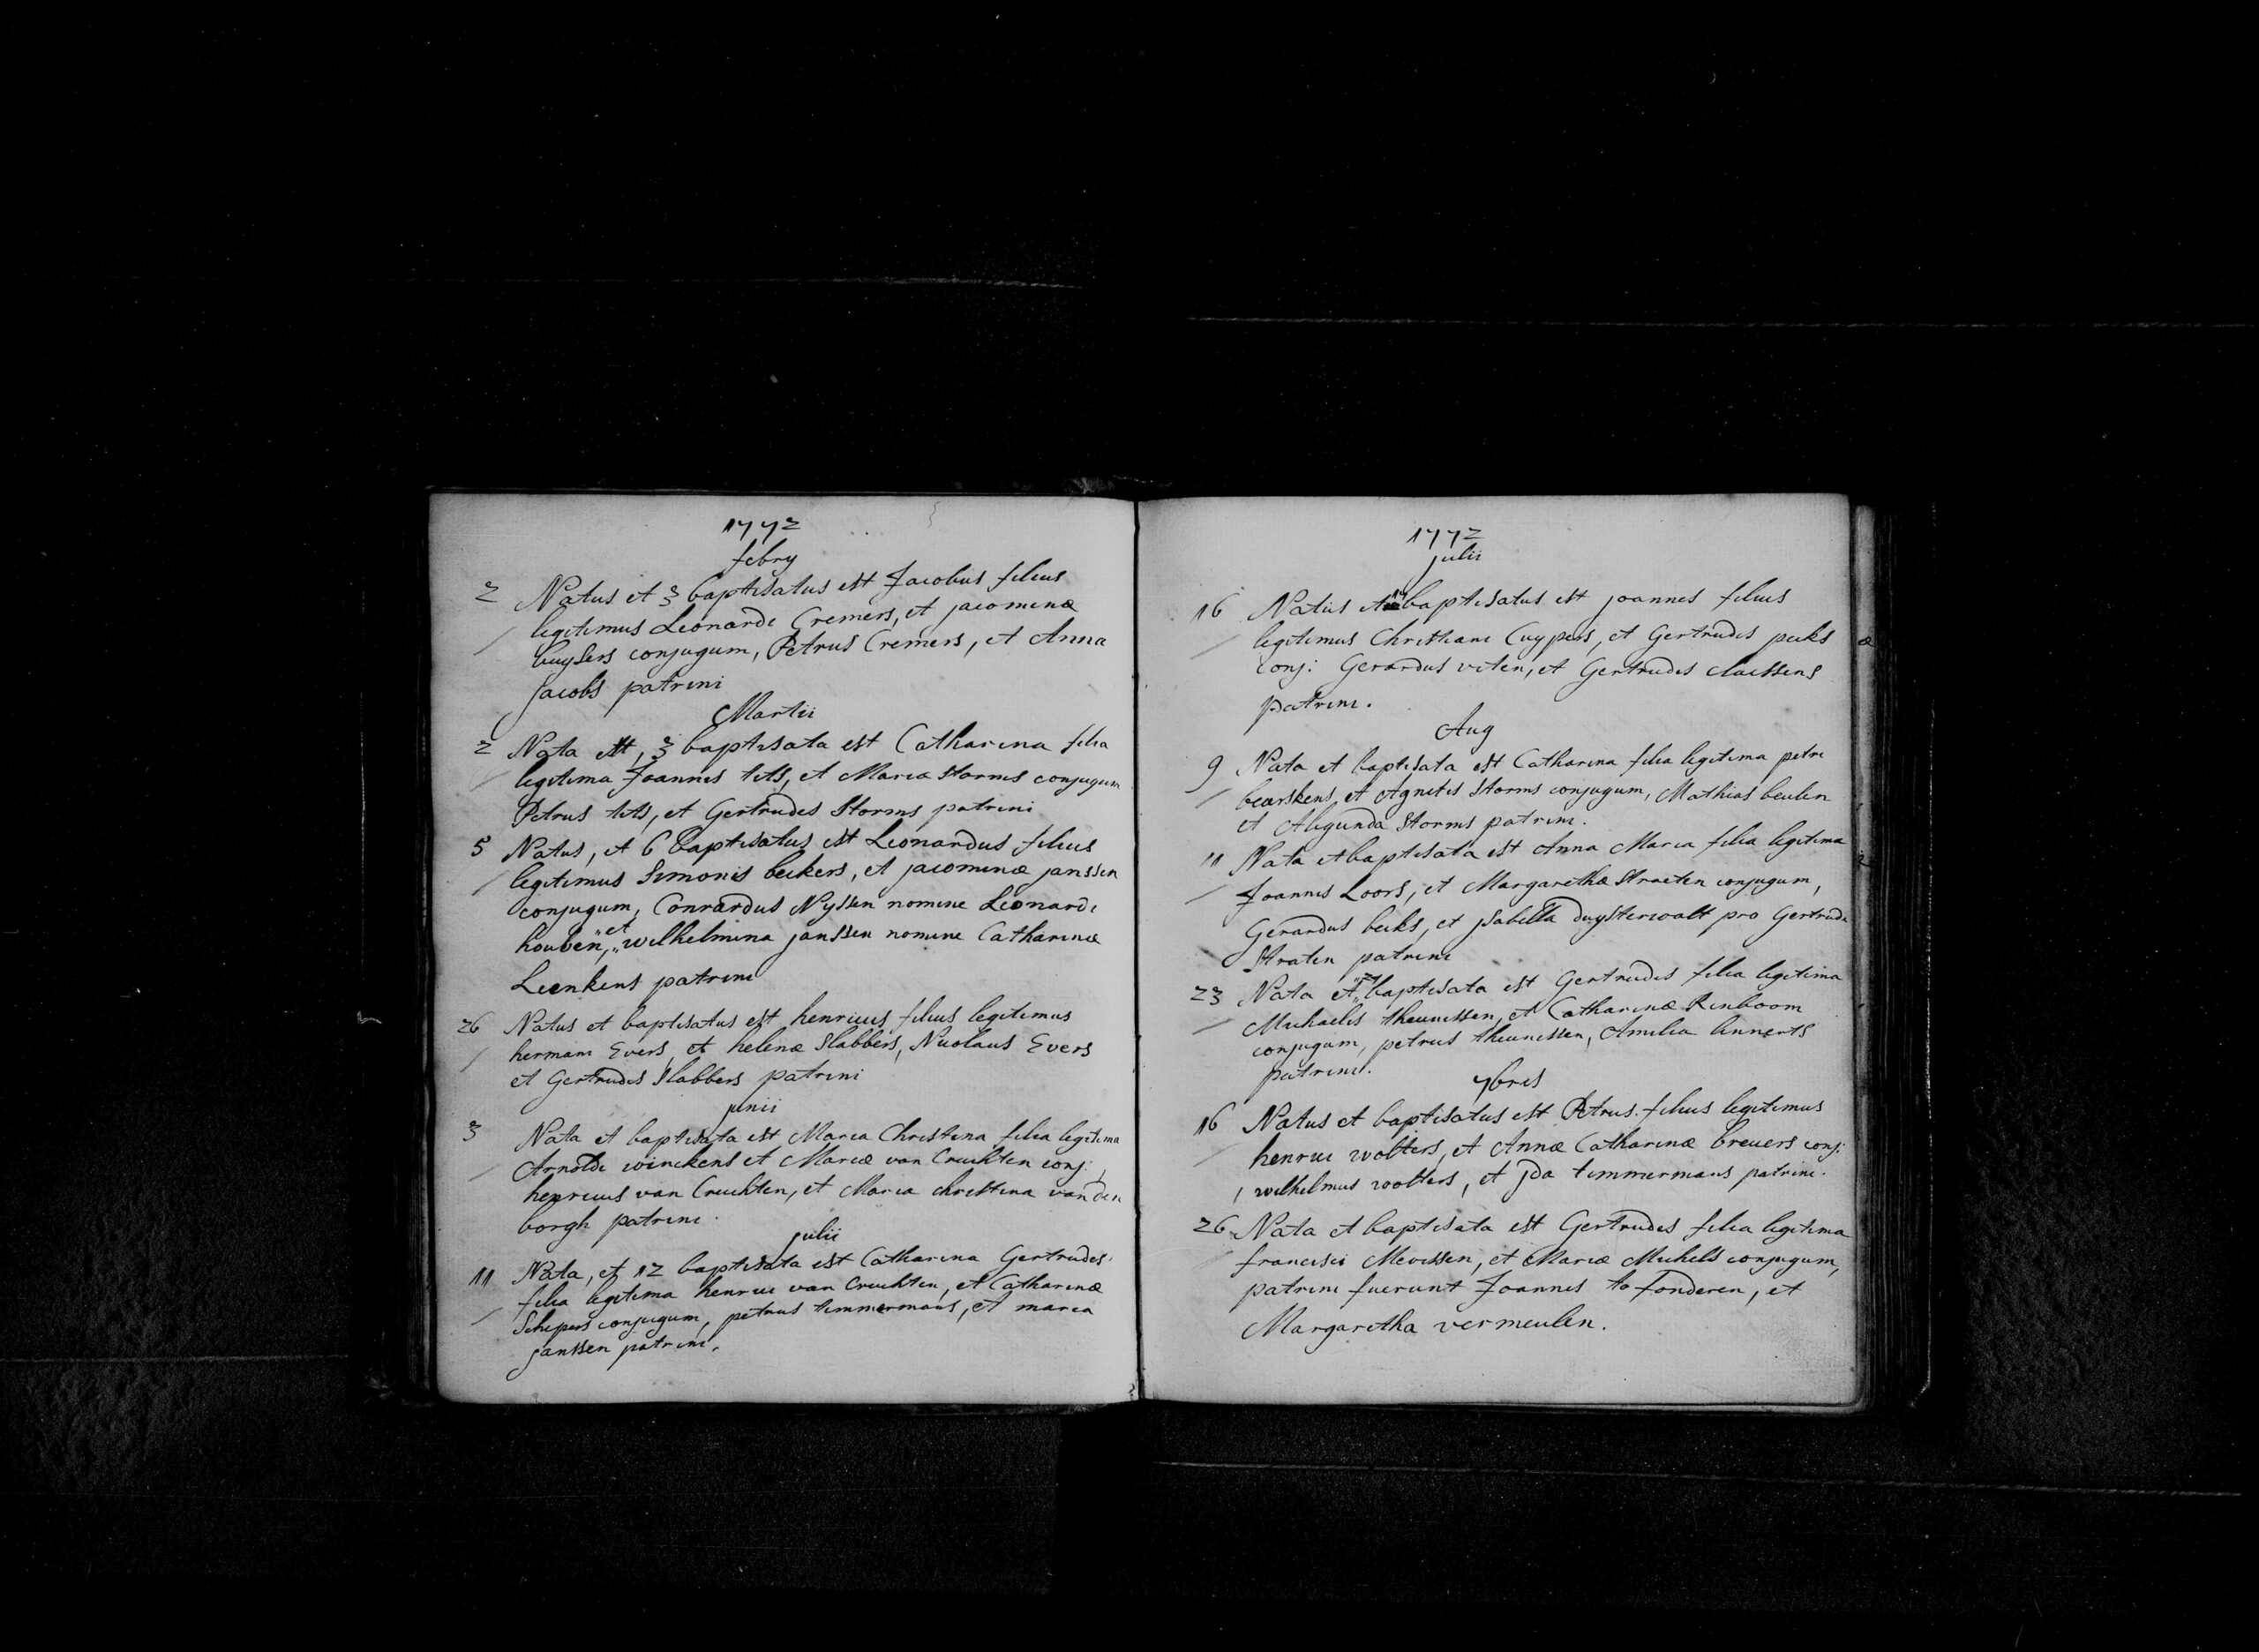 1772
febry
2 Natus et 3 baptisatus est Jacobus filius
legitimus Leonardi Cremers, et jacominæ
buysers conjugum, Petrus Cremers, et Anna
Jacobs patrini
Martii
2 Nata est, 3 baptisata est Catharina filia
legitima Joannis tits, et Mariæ storms conjugum
Petrus tits, et Gertrudis Storms patrini
5 Natus, et 6 baptisatus est Leonardus filius
legitimus Simonis beckers, et jacominæ janssen
conjugum, Conrardus Nyssen nomine Leonardi
houben, et wilhelmina janssen nomine Catharinæ
Leenkens patrini
26 Natus et baptisatus est henricus filius legitimus
hermani Evers, et helenæ Slabbers, Nicolaus Evers
et Gertrudis Slabbers patrini
junii
3 Nata et baptisata est Maria Christina filia legitima
Arnoldi winckens et Mariæ van Cruchten conj:
henricus van Cruchten, et Maria christina van den
borgh patrini.
julii
11 Nata, et 12 baptisata est Catharina Gertrudis
filia legitima henrici van Cruchten, et Catharinæ
Schepers conjugum, petrus timmermans, et maria
janssen patrini.
1772
julii
16 Natus et 17 baptisatus est joannes filius
legitimus Christiani Cuypers, et Gertrudis peeks
conj: Gerardus viten, et Gertrudis claessens
patrini.
Aug
9 Nata et baptisata est Catharina filia legitima petri
beurskens, et Agnetis Storms conjugum, Mathias beulen
et Aligunda Storms patrini.
11 Nata et baptisata est Anna Maria filia legitima
Joannis Loors, et Margarethæ Straeten conjugum,
Gerardus beeks, et jsabella duysterwalt pro Gertrude
Straten patrini
23 Nata et baptisata est Gertrudis filia legitima
Michaelis theunissen, et Catharinæ Rinboom
conjugum, petrus theunissen, Amilia linnerts
patrini.
7bris
16 Natus et baptisatus est Petrus filius legitimus
henrici wolters, et Annæ Catharinæ breuers conj:
wilhelmus wolters, et jda timmermans patrini.
26 Nata et baptisata est Gertrudis filia legitima
francisci Mevissen, et Mariæ Michels conjugum,
patrini fuerunt Joannes to fonderen, et
Margaretha vermeulen.